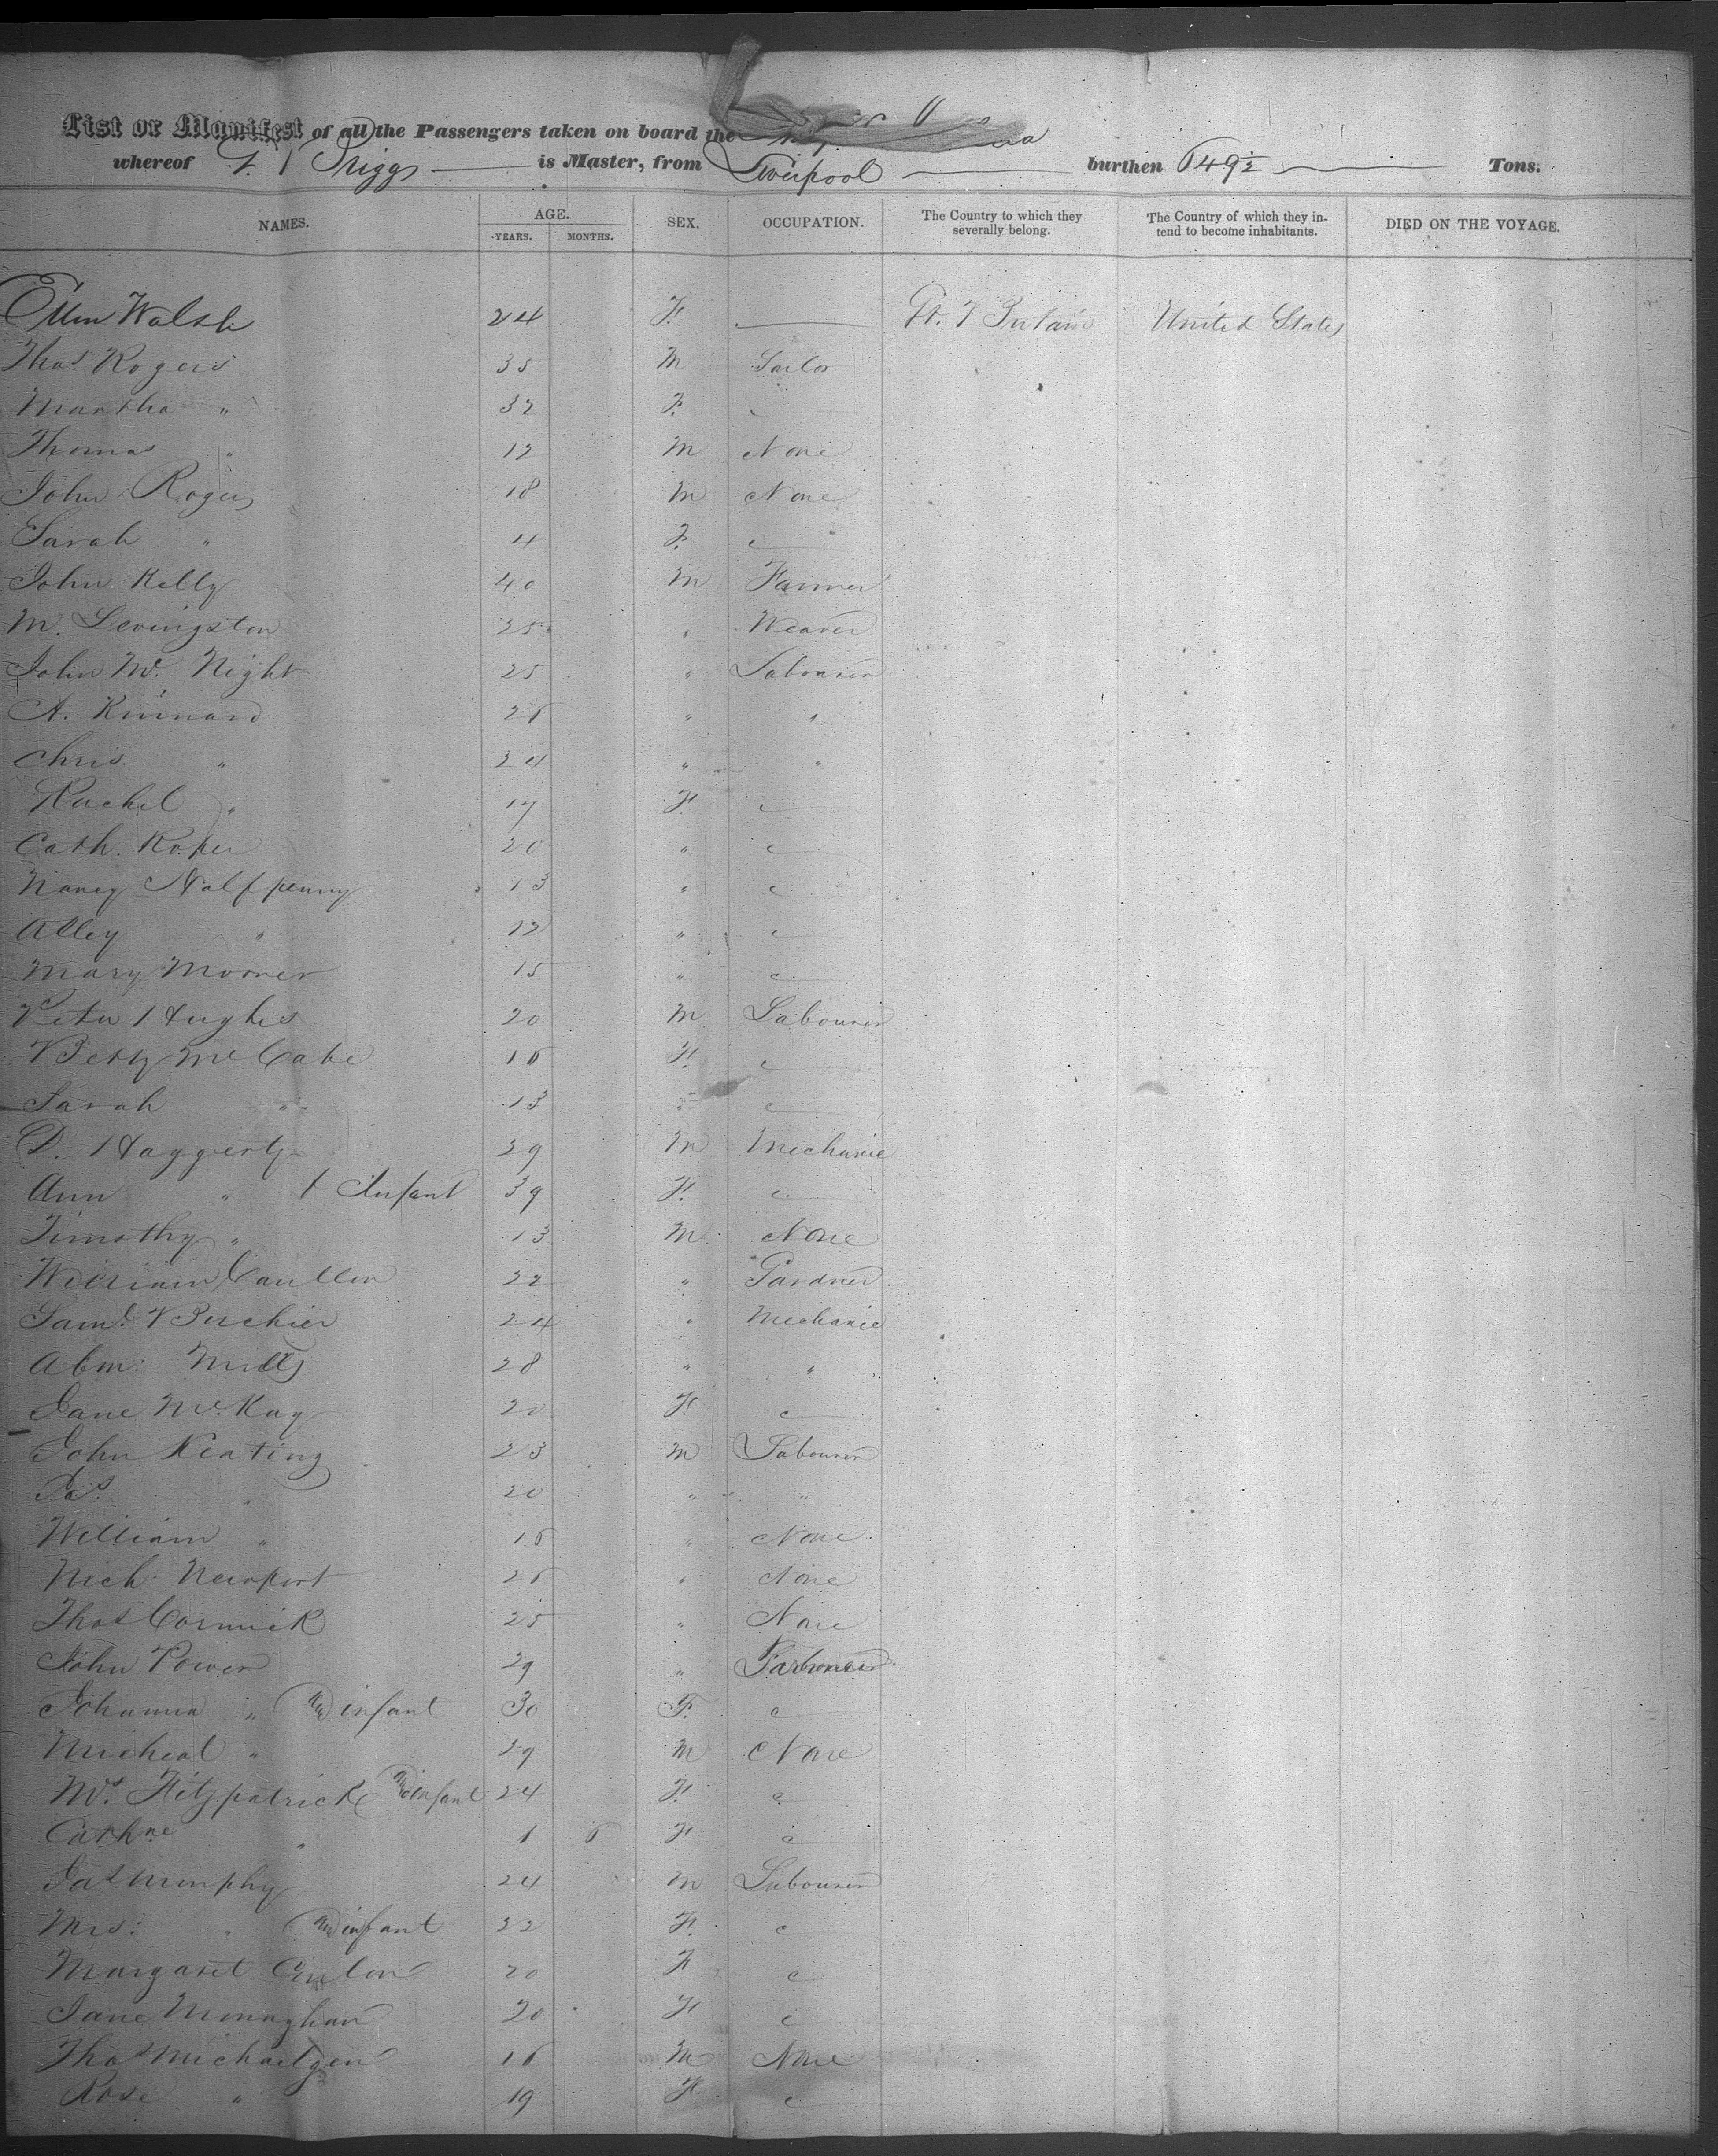 List or Manifest of all the Passengers taken on board the
whereof F. Griggs is Master, from Liverpool burthen 649½ Tons.
NAMES. AGE. YEARS. MONTHS. SEX. OCCUPATION. The Country to which they severally belong. The Country of which they intend to become inhabitants. DIED ON THE VOYAGE.
Ellen Walsh 24 F. Gt. Britain United States
Thos Rogers 35 M
Martha " 32 F.
Thomas " 12 M None
John Rogers 18 M None
Sarah " 4 F.
John Kelly 40 M Farmer
M. Levingston 25 " Weaver
John Mc Night 25 " Labourer
A. Kinnard 26 " "
Chris. " 24 " "
Rachel " 17 F
Cath. Roper 20 "
Nancy Halfpenny 13 "
Alley " 12 "
Mary Mooner 15 "
Peter Hughes 20 M Labourer
Betty McCabe 16 F.
Sarah " 13 "
D. Haggerty 29 M Mechanic
Ann " & Infant 39 F.
Timothy " 13 M None
William 22 " Gardner
Saml. 24 " Mechanic
Abm: Mills 28 " "
Jane Mc.Kay 20 F.
John Keating 23 M Labourer
Jas. " 20 " "
William " 16 " None
Nich. Newport 26 " None
Thos Cormick 25 " None
John Power 29 "
Johanna " and infant 30 F.
Micheal " 29 M None
Mrs. Fitzpatrick and infant 24 F.
Cathne " 1 6 F
Jas Murphy 24 M Labourer
Mrs: " and infant 22 F.
Margaret Conlon 20 F
Jane Monaghan 20 F
Thos 16 M None
Rose " 19 F